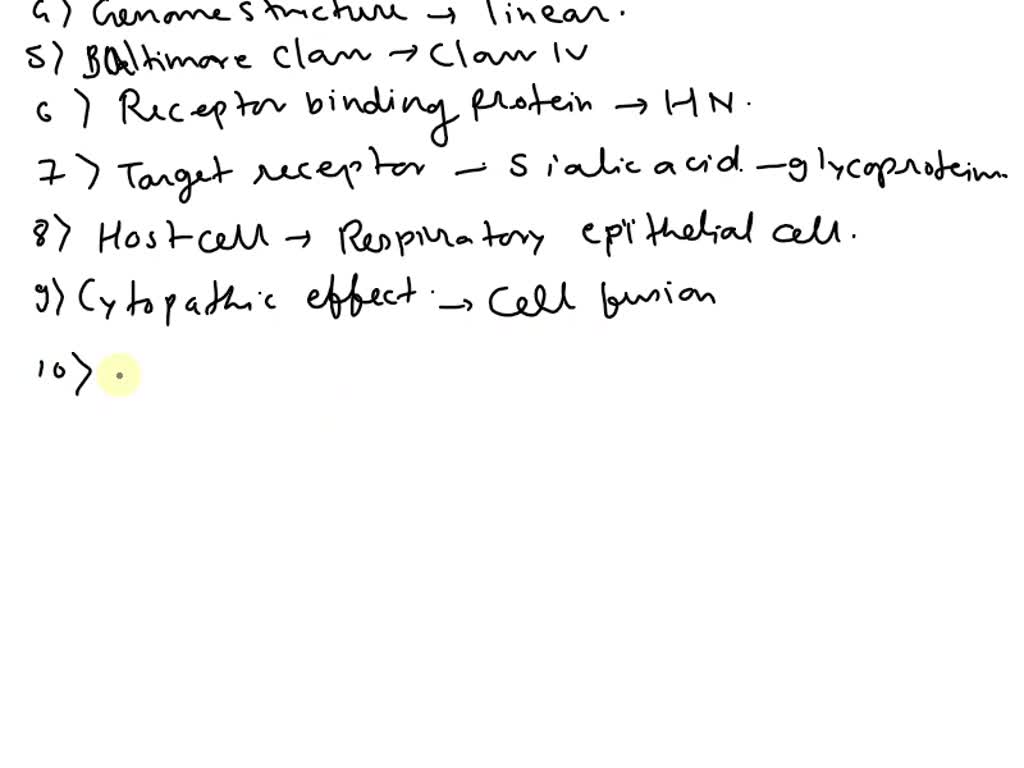 4) Genome structure → linear.
5) Baltimore Class → Class IV
6) Receptor binding protein → HN.
7) Target receptor - Sialic acid - glycoprotein.
8) Host cell → Respiratory epithelial cell.
9) Cytopathic effect. → Cell fusion
10)